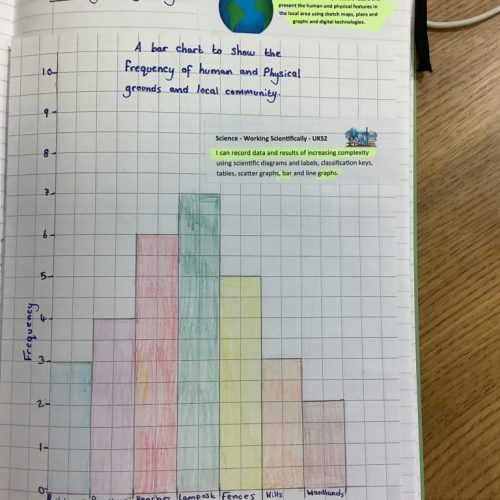 present the human and physical features in
the local area using sketch maps, plans and
graphs and digital technologies.
A bar chart to show the
frequency of human and Physical
grounds and local community.
Science - Working Scientifically - UKS2
I can record data and results of increasing complexity
using scientific diagrams and labels, classification keys,
tables, scatter graphs, bar and line graphs.
10
9
8
7
6
5
4
3
2
1
0
Frequency
Lampost Fences Hills Woodlands